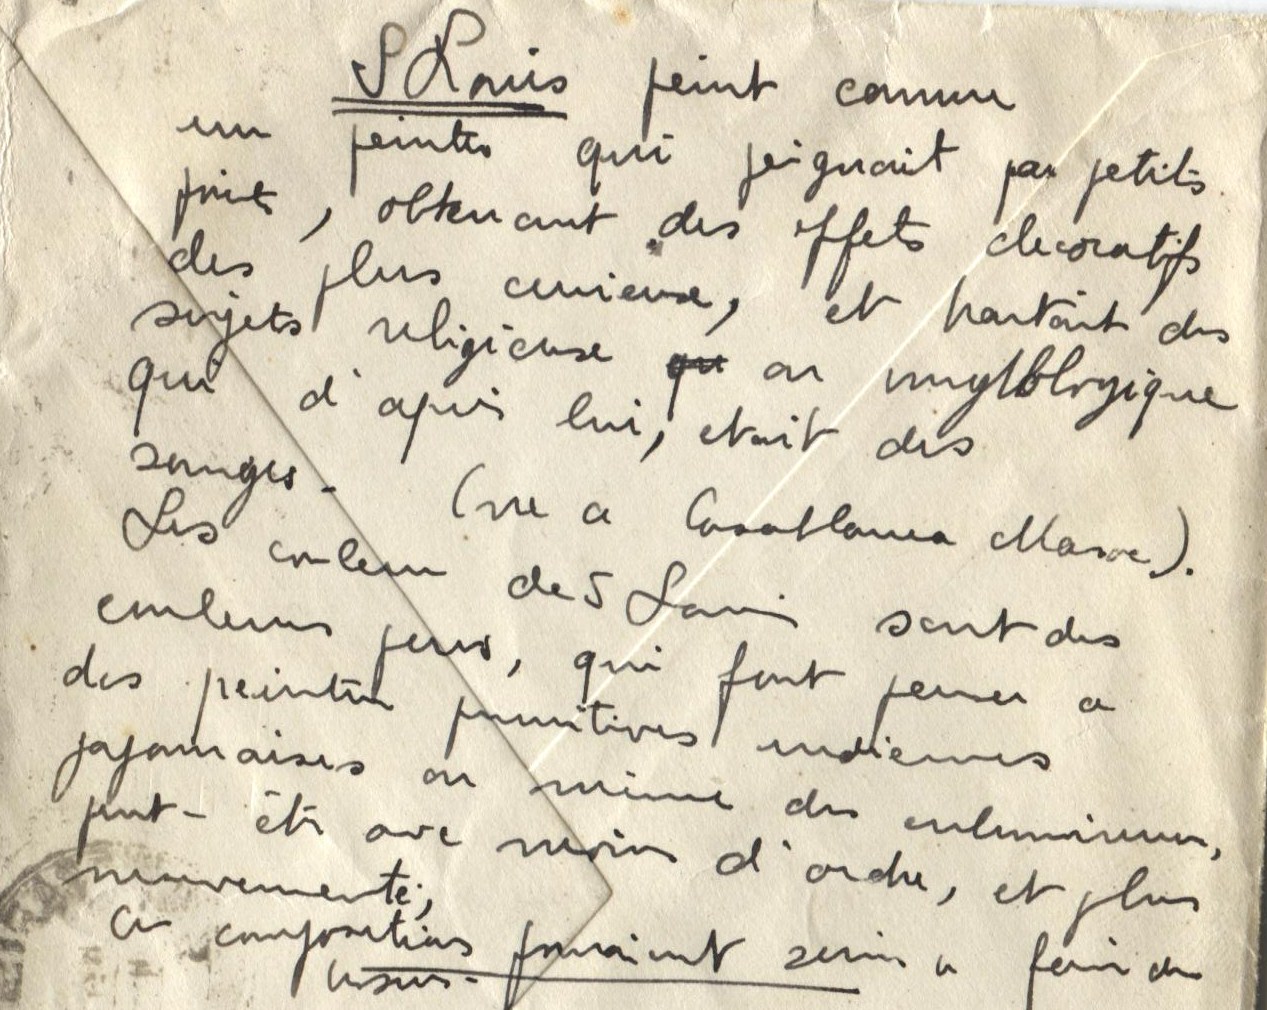 S Louis peint comme
un peintre qui peignait par petits
points, obtenant des effets decoratifs
des plus curieuse, et traitait des
sujets religieuse qu ou mythologique
qui d'apres lui, etait des
songes.
(né a Casablanca Maroc).
Les couleurs de S Louis sont des
couleurs pures, qui font penser a
des peintures primitives indiennes
japonaises ou même des enluminures,
peut-être avec moins d'ordre, et plus
mouvementé,
Ces compositions pouraient servir a faire des
tissus.